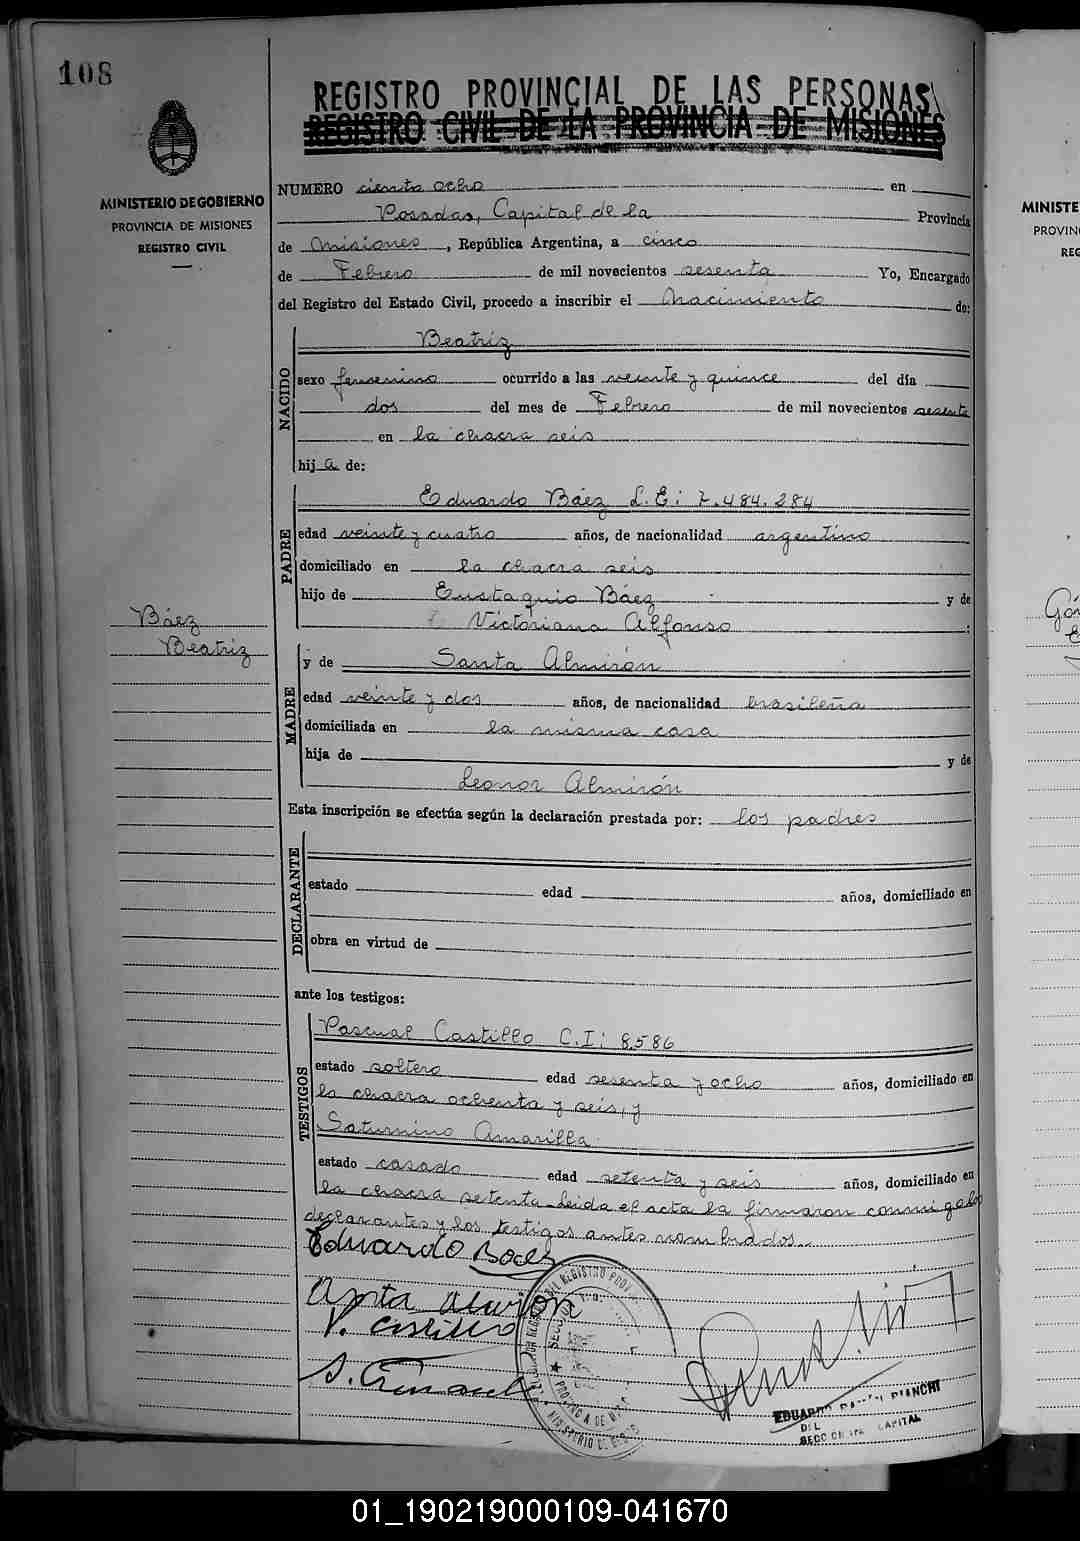 108
REGISTRO PROVINCIAL DE LAS PERSONAS
REGISTRO CIVIL DE LA PROVINCIA DE MISIONES
MINISTERIO DE GOBIERNO
PROVINCIA DE MISIONES
REGISTRO CIVIL
NUMERO ciento ocho en
Posadas, Capital de la Provincia
de Misiones, República Argentina, a cinco
de Febrero de mil novecientos sesenta Yo, Encargado
del Registro del Estado Civil, procedo a inscribir el Nacimiento de:
NACIDO
Beatriz
sexo femenino ocurrido a las veinte y quince del día
dos del mes de Febrero de mil novecientos sesenta
en la chacra seis
hija de:
PADRE
Eduardo Báez L.E: 7.484.284
edad veinte y cuatro años, de nacionalidad argentino
domiciliado en la chacra seis
hijo de Eustaquio Báez y de
Victoriana Alfonso
Báez
Beatriz
MADRE
y de Santa Almirón
edad veinte y dos años, de nacionalidad brasileña
domiciliada en la misma casa
hija de y de
Leonor Almirón
Esta inscripción se efectúa según la declaración prestada por: los padres
DECLARANTE
estado edad años, domiciliado en
obra en virtud de
ante los testigos:
TESTIGOS
Pascual Castillo C.I: 8586
estado soltero edad sesenta y ocho años, domiciliado en
la chacra ochenta y seis, y
Saturnino Amarilla
estado casado edad setenta y seis años, domiciliado en
la chacra setenta. Leida el acta la firmaron conmigo los
declarantes y los testigos antes nombrados.
Eduardo Baez
Almiron
P. Castillo
S.
EDUARDO RAMON BIANCHI
DEL
SECCION CAPITAL
MINISTE
PROVIN
REG
01_190219000109-041670